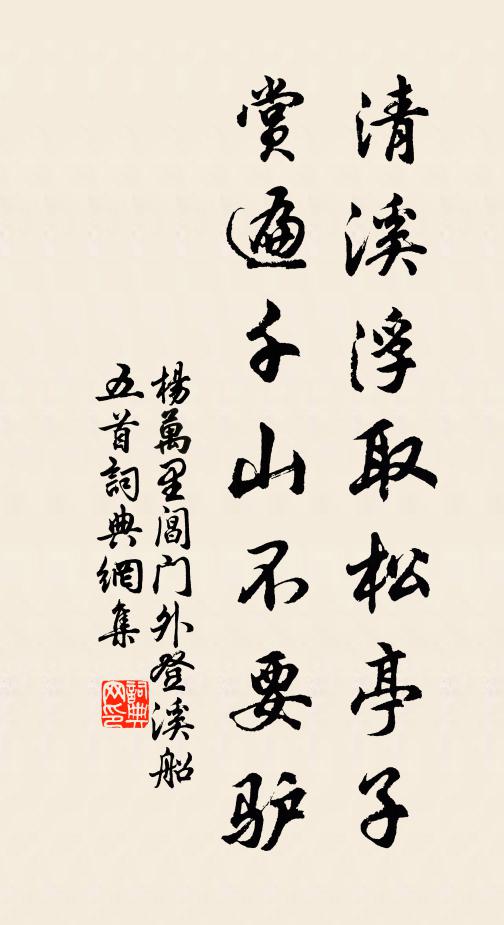 清溪浮取松亭子
赏遍千山不要驴
杨万里阊门外登溪船
五首词典网集
词典网印